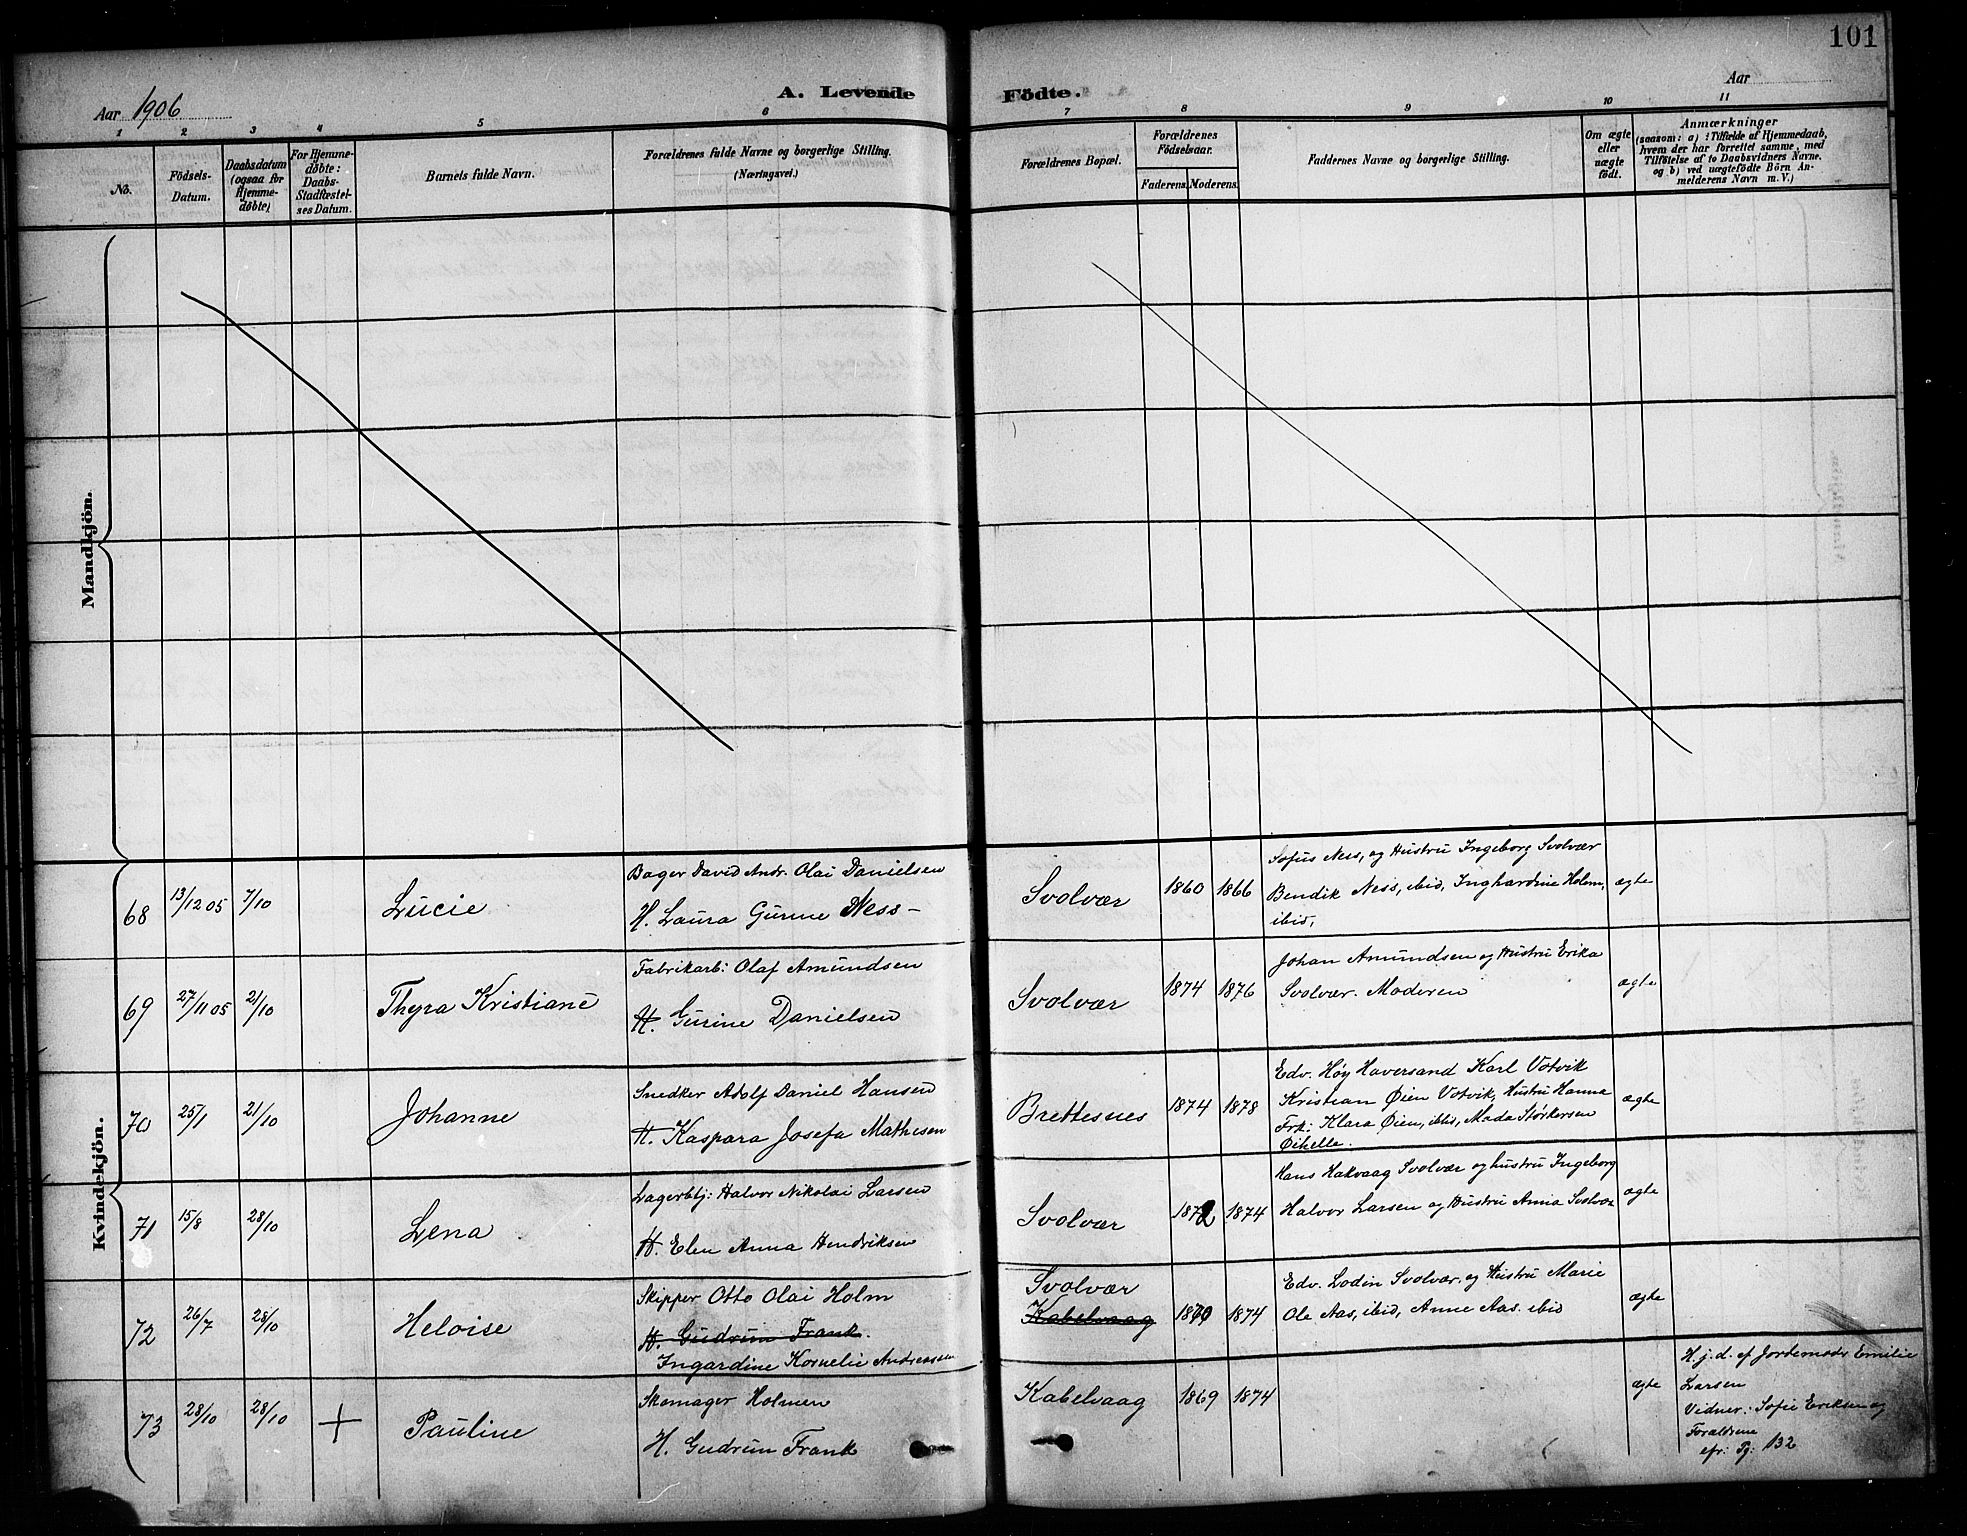 101
Aar 1906
A. Levende
Födte.
Aar
1 2 3 4 5 6 7 8 9 10 11
No.
Födsels-
Datum.
Daabsdatum
(ogsaa for
Hjemme-
döbte)
For Hjemme-
döbte:
Daabs-
Stadfæstel-
ses Datum.
Barnets fulde Navn.
Forældrenes fulde Navne og borgerlige Stilling.
(Næringsvei.)
Forældrenes Bopæl.
Forældrenes
Födselsaar.
Faderens. Moderens.
Faddernes Navne og borgerlige Stilling.
Om ægte
eller
uægte
født.
Anmærkninger
(saasom: a) i Tilfælde af Hjemmedaab,
hvem der har forrettet samme, med
Tilföielse af to Daabsvidners Navne.
og b) ved uægtefödte Börn An-
melderens Navn m. V.)
Mandkjön.
Kvindekjön.
68 13/12 05 7/10 Lucie
Bager David Andr. Olai Danielsen
H. Laura Gurine Ness -
Svolvær 1860 1866
Sofus Ness, og Hustru Ingeborg Svolvær
Bendik Ness, ibid, Inghardine Holm,
ibid,
ægte
69 27/11 05 21/10 Thyra Kristiane
Fabrikarb: Olaf Amundsen
H. Gurine Danielsen
Svolvær 1874 1876
Johan Amundsen og Hustru Erika
Svolvær. Moderen
ægte
70 25/1 21/10 Johanne
Snedker Adolf Daniel Hansen
H. Kaspara Josefa Mathisen
Brettesnes 1874 1878
Edv. Høy Haversand Karl Votvik
Kristian Øien Votvik, Hustru Hanna
Frk: Klara Øien, ibid, Mada Størkersen
ægte
71 15/8 28/10 Lena
Lagerbtj: Halvor Nikolai Larsen
H. Elen Anna Hendriksen
Svolvær 1872 1874
Hans Hakvaag Svolvær og hustru Ingeborg
Halvor Larsen og Hustru Anna Svolvær
ægte
72 26/7 28/10 Heloise
Skipper Otto Olai Holm
H. Gudrun Frank.
Ingardine Kornelie Andreassen
Svolvær
Kabelvaag 1870 1874
Edv. Lodin Svolvær. og Hustru Marie
Ole Aas, ibid, Anne Aas. ibid
ægte
73 28/10 28/10 + Pauline
Skomager Holmen
H. Gudrun Frank
Kabelvaag 1869 1874
ægte
H. j. d. af Jordemodr Emilie
Larsen
Vidner: Sofie Eriksen og
Forældrene
cfr: Pg: 132